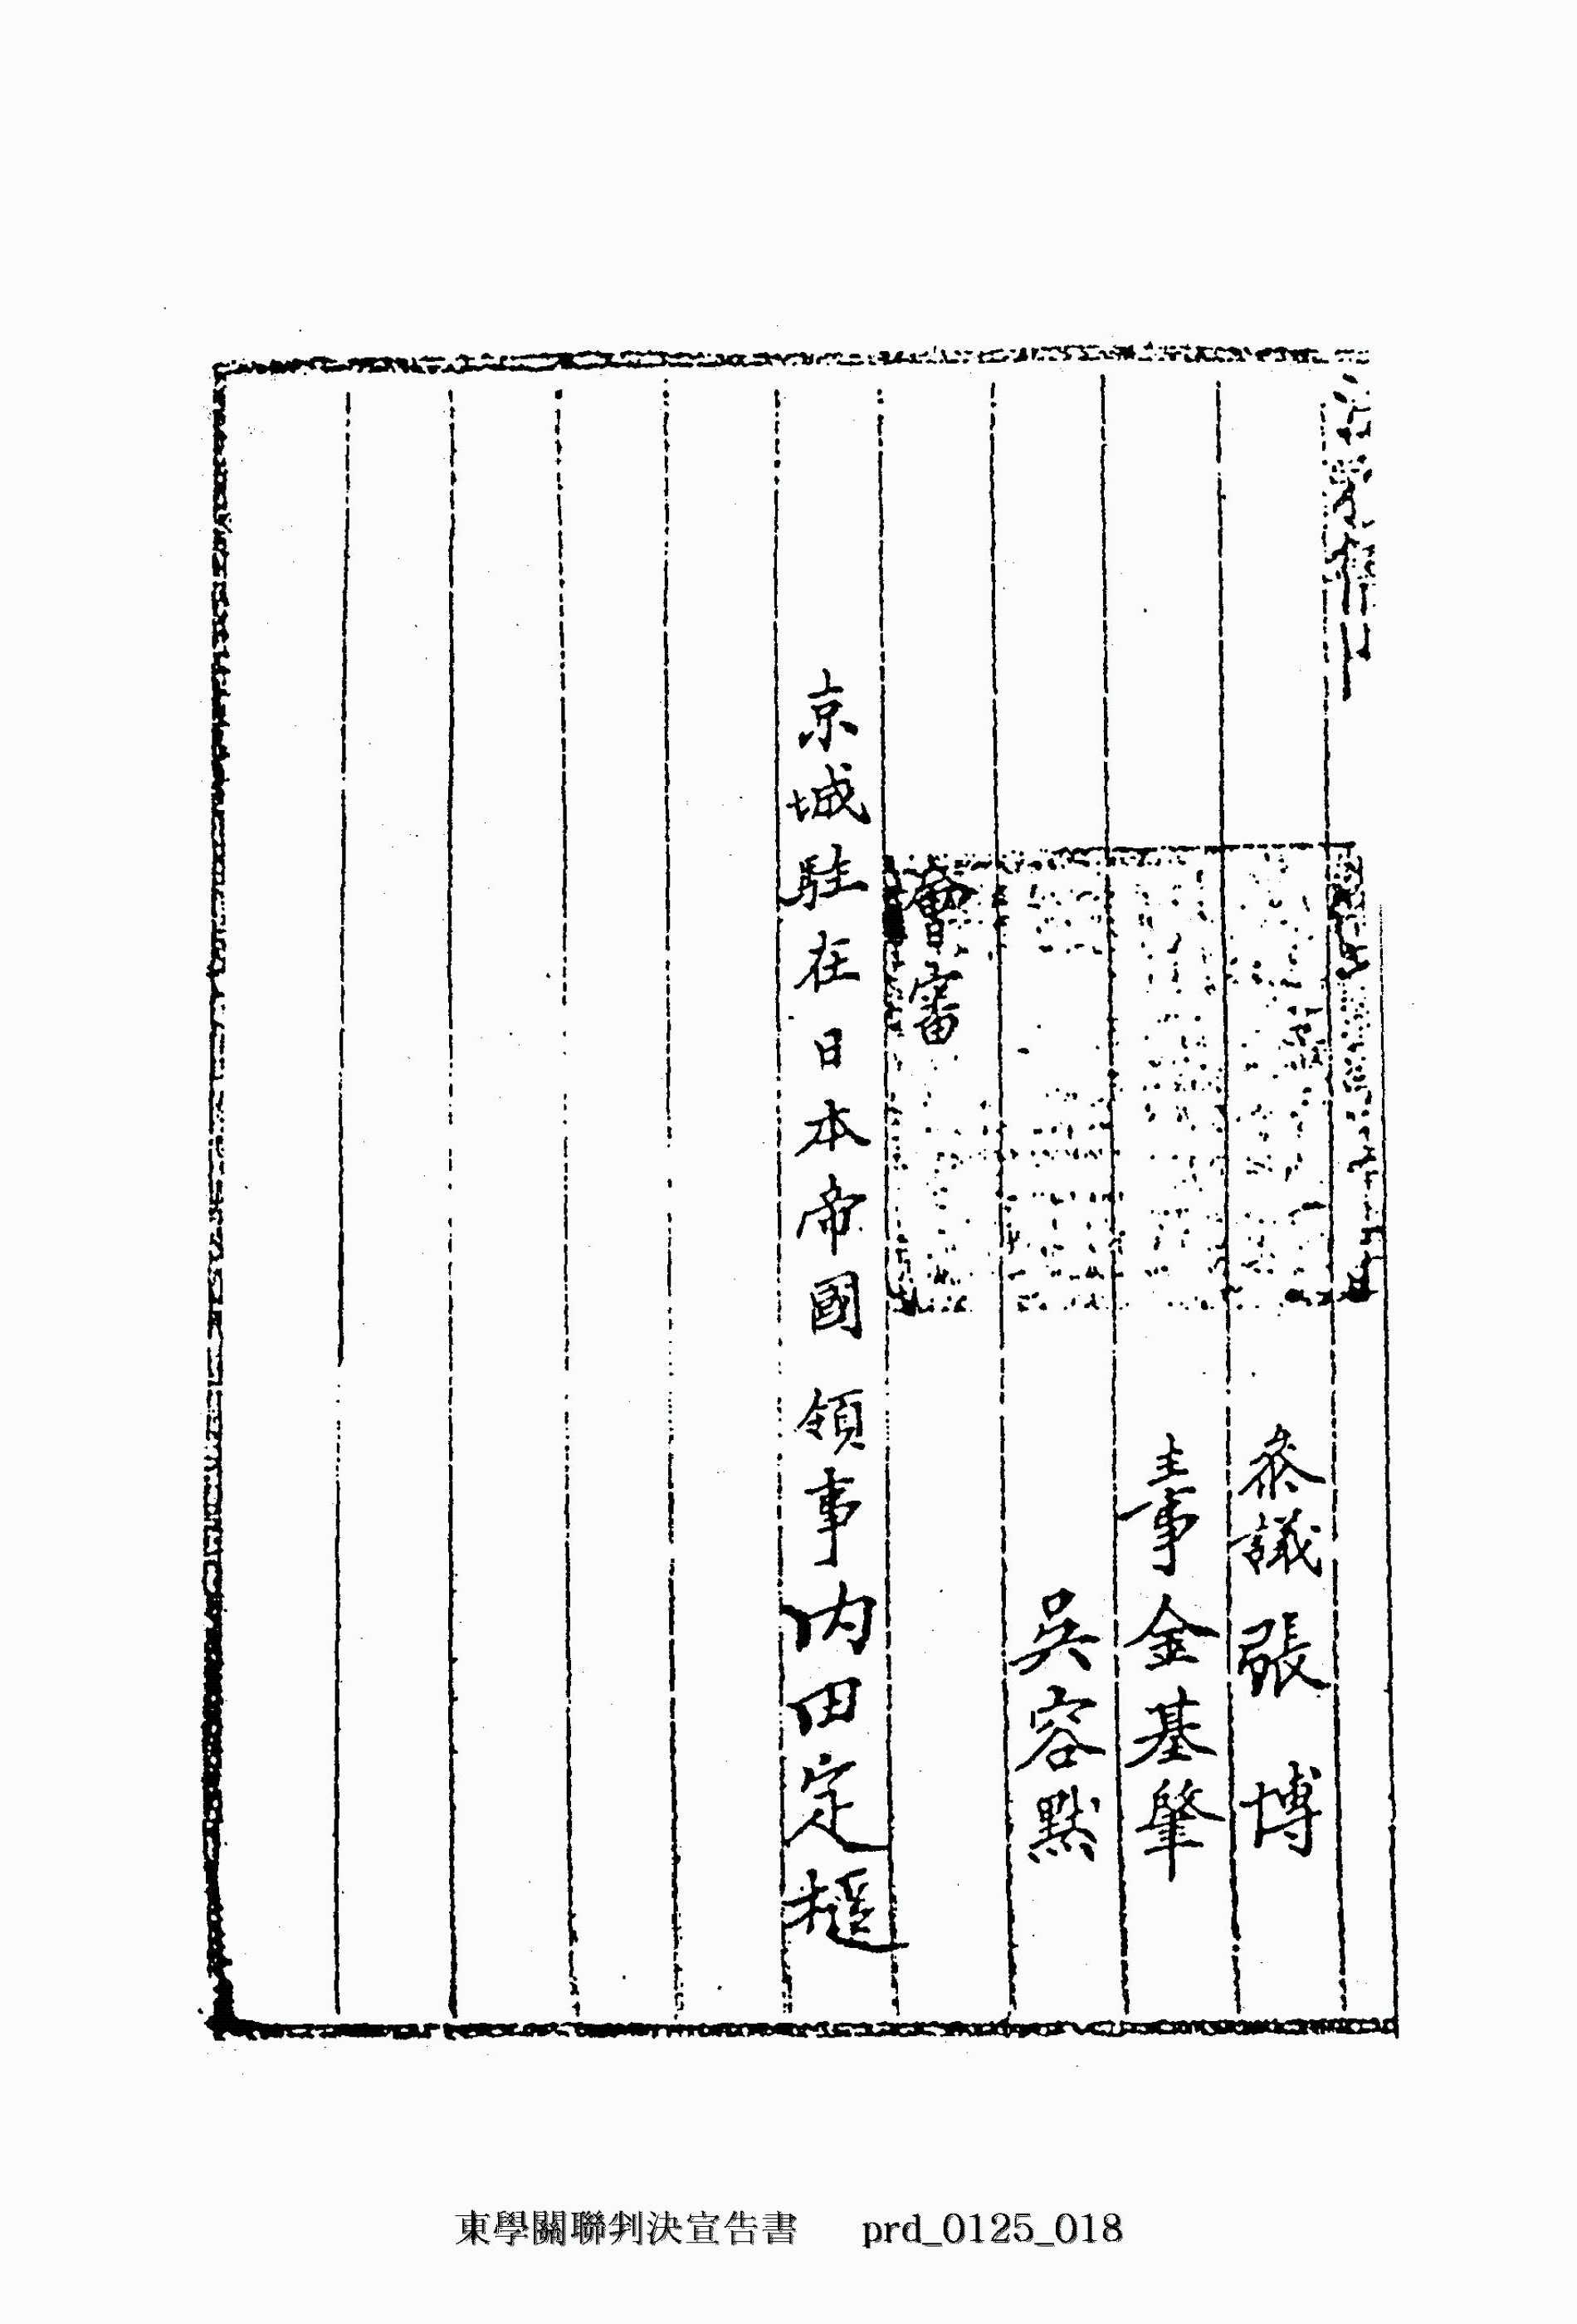 參議 張 博
主事 金基肇
吳容黙
會審
京城駐在日本帝國領事 內田定槌
東學關聯判決宣告書 prd_0125_018